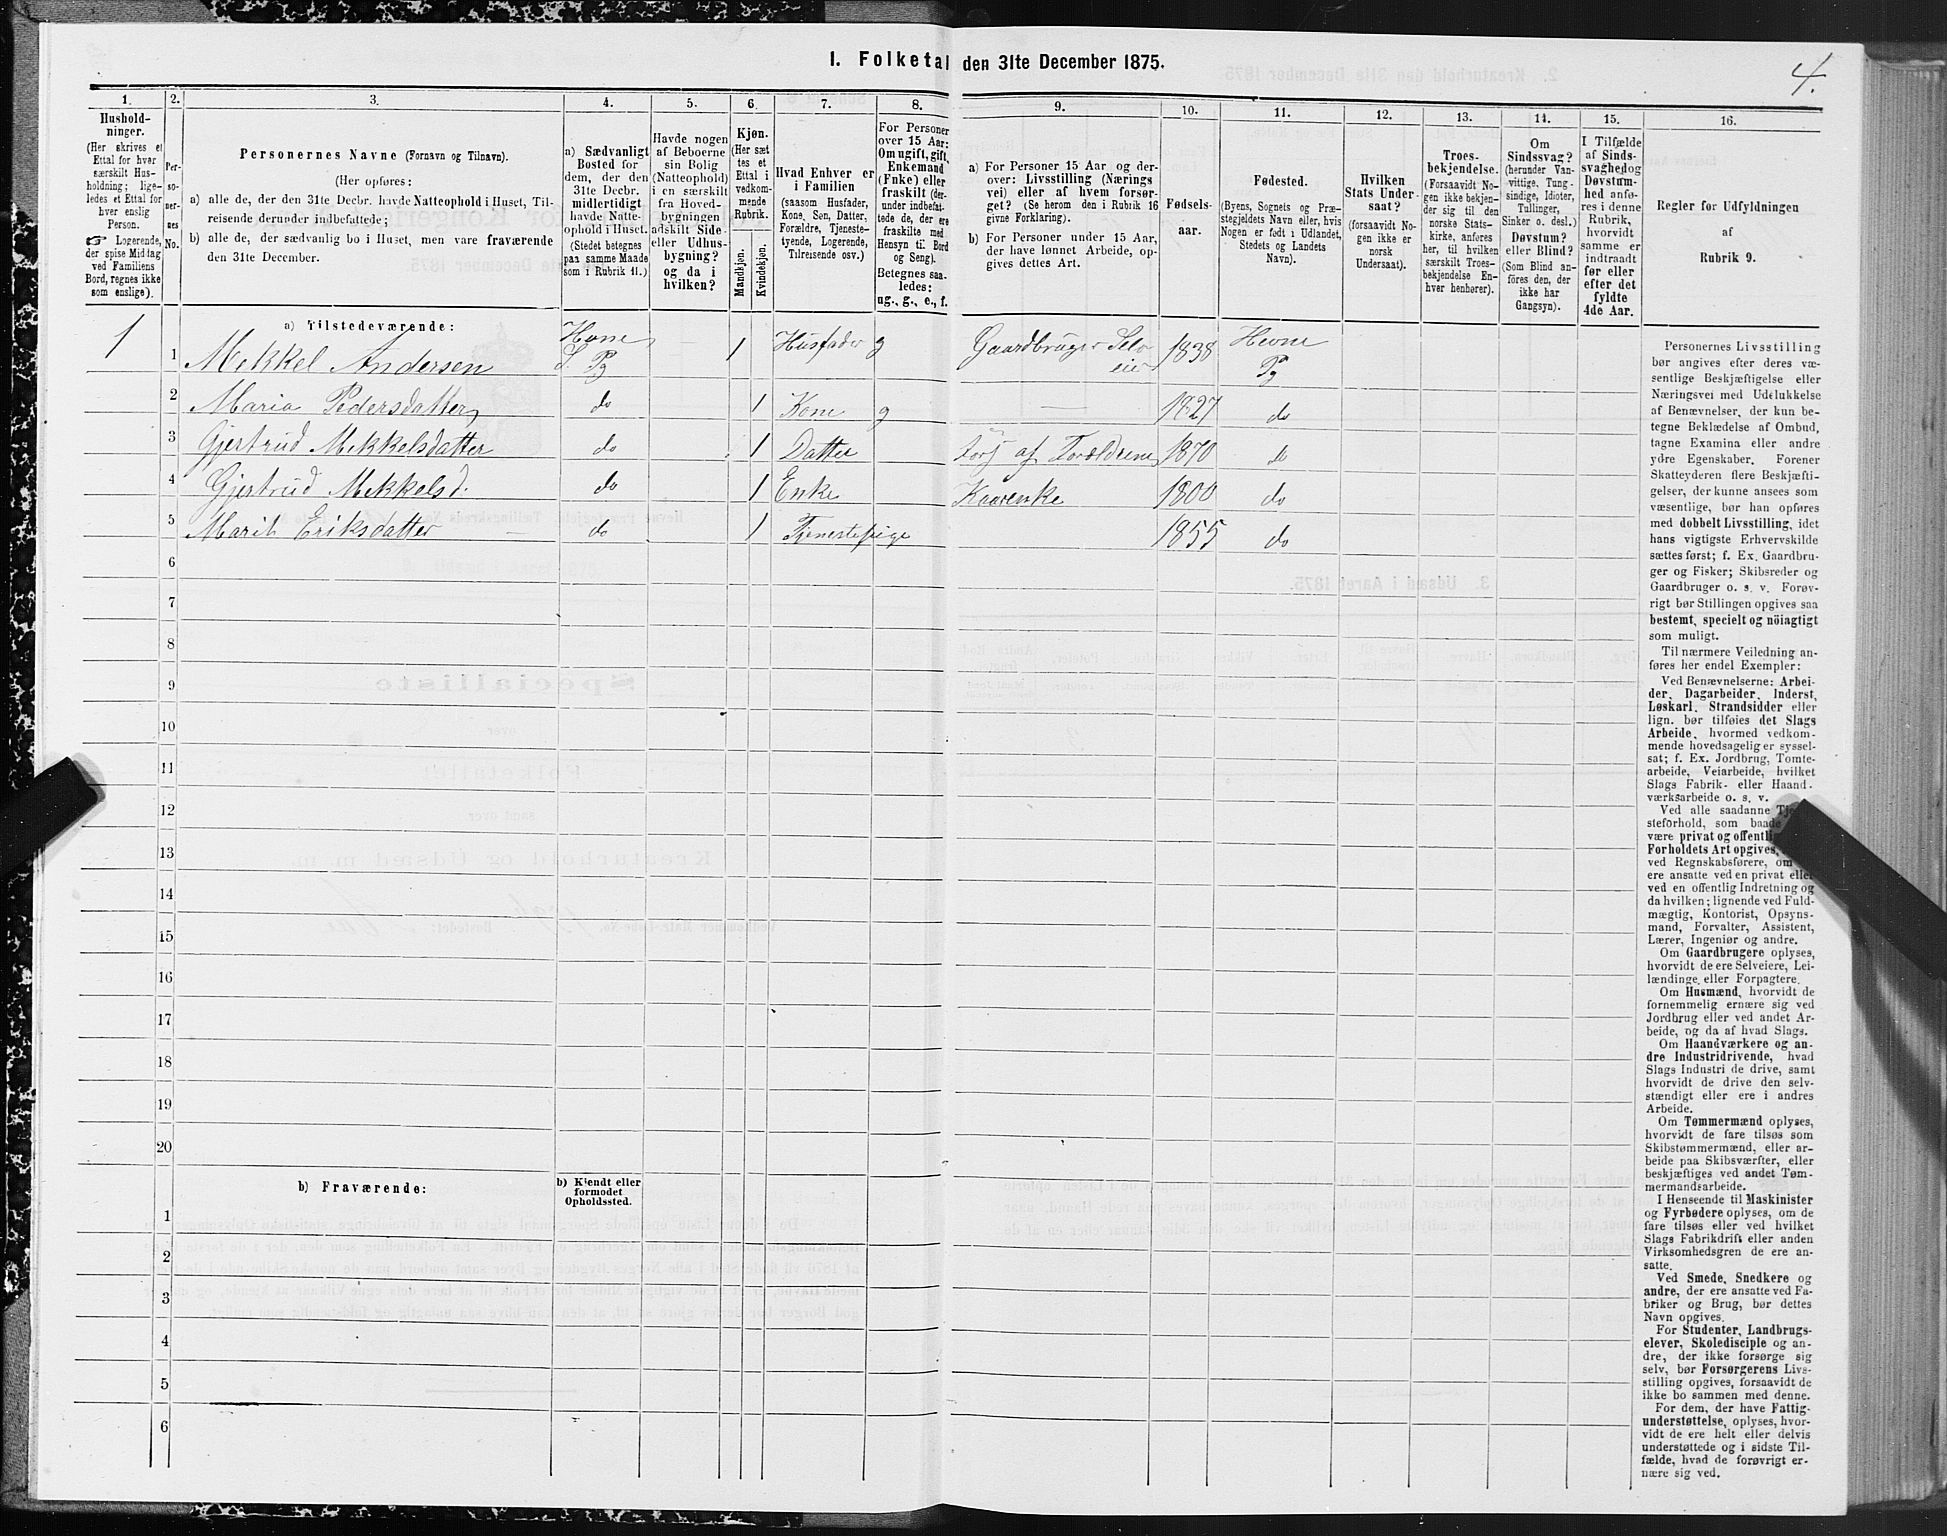 I. Folketal den 31te December 1875.
4.
1.
Hushold-
ninger.
(Her skrives et
Ettal for hver
særskilt Hus-
holdning; lige-
ledes et Ettal for
hver enslig
Person.
☞ Logerende,
der spise Middag
ved Familiens
Bord, regnes ikke
som enslige).
2.
Per-
so-
ner-
nes
No.
3.
Personernes Navne (Fornavn og Tilnavn).
(Her opføres:
a) alle de, der den 31te Decbr. havde Natteophold i Huset, Til-
reisende derunder indbefattede;
b) alle de, der sædvanlig bo i Huset, men vare fraværende
den 31te December.
4.
a) Sædvanligt
Bosted for
dem, der den
31te Decbr.
midlertidigt
havde Natte-
ophold i Huset.
(Stedet betegnes
paa samme Maade
som i Rubrik 11.)
5.
Havde nogen
af Beboerne
sin Bolig
(Natteophold)
i en særskilt
fra Hoved-
bygningen
adskilt Side-
eller Udhus-
bygning?
og da i
hvilken?
6.
Kjøn.
(Her sæt
tes et
Ettal i
vedkom-
mende
Rubrik.
Mandkjøn.
Kvindekjøn.
7.
Hvad Enhver er
i Familien
(saasom Husfader,
Kone, Søn, Datter,
Forældre, Tjeneste-
tyende, Logerende,
Tilreisende osv.)
8.
For Personer
over 15 Aar:
Om ugift, gift,
Enkemand
(Enke) eller
fraskilt (der-
under indbefat-
tede de, der ere
fraskilte med
Hensyn til Bord
og Seng).
Betegnes saa-
ledes:
ug., g., e., f.
9.
a) For Personer 15 Aar og der-
over: Livsstilling (Nærings
vei) eller af hvem forsør-
get? (Se herom den i Rubrik 16
givne Forklaring).
b) For Personer under 15 Aar,
der have lønnet Arbeide, op-
gives dettes Art.
10.
Fødsels-
aar.
11.
Fødested.
(Byens, Sognets og Præ-
stegjeldets Navn eller, hvis
Nogen er født i Udlandet,
Stedets og Landets
Navn).
12.
Hvilken
Stats Under-
saat?
(forsaavidt No-
gen ikke er
norsk
Undersaat).
13.
Troes-
bekjendelse.
(Forsaavidt No-
gen ikke bekjen-
der sig til den
norske Stats-
kirke, anføres
her, til hvilken
særskilt Troes-
bekjendelse En-
hver henhører).
14.
Om
Sindssvag?
(herunder Van-
vittige, Tung-
sindige, Idioter,
Tullinger,
Sinker o. desl.)
Døvstum?
eller Blind?
(Som Blind an-
føres den, der
ikke har
Gangsyn).
15.
I Tilfælde
af Sinds-
svaghed og
Døvstum-
hed anfø-
res i denne
Rubrik,
hvorvidt
samme er
indtraadt
før eller
efter det
fyldte
4de Aar.
16.
Regler for Udfyldningen
af
Rubrik 9.
a) Tilstedeværende:
1 1 Mekkel Andersen Hevne S. Pg 1 Husfader g Gaardbruger Selveier 1838 Hevne Pg
2 Maria Pedersdatter do 1 Kone g 1827 do
3 Gjertrud Mekkelsdatter do 1 Datter Fors af Forældrene 1870 do
4 Gjertrud Mekkelsd. do 1 Enke Kaarenke 1800 do
5 Marit Eriksdatter do 1 Tjenestepige 1855 do
6
7
8
9
10
11
12
13
14
15
16
17
18
19
20
b) Fraværende:
b) Kjendt eller
formodet
Opholdssted.
1
2
3
4
5
6
Personernes Livsstilling
bør angives efter deres væ-
sentlige Beskjæftigelse eller
Næringsvei med Udelukkelse
af Benævnelser, der kun be-
tegne Beklædelse af Ombud,
tagne Examina eller andre
ydre Egenskaber. Forener
Skatteyderen flere Beskjæfti-
gelser, der kunne ansees som
væsentlige, bør han opføres
med dobbelt Livsstilling, idet
hans vigtigste Erhvervskilde
sættes først; f. Ex. Gaardbru-
ger og Fisker; Skibsreder og
Gaardbruger o. s. v. Forøv-
rigt bør Stillingen opgives saa
bestemt, specielt og nöiagtigt
som muligt.
Til nærmere Veiledning an-
føres her endel Exempler:
Ved Benævnelserne: Arbei-
der, Dagarbeider, Inderst,
Løskarl, Strandsidder eller
lign. bør tilføies det Slags
Arbeide, hvormed vedkom-
mende hovedsagelig er syssel-
sat; f. Ex. Jordbrug, Tomte-
arbeide, Veiarbeide, hvilket
Slags Fabrik- eller Haand-
værksarbeide o. s. v.
Ved alle saadanne
steforhold, som baade
være privat og
Forholdets Art opgives,
ved Regnskabsførere, om
ere ansatte ved en privat eller
ved en offentlig Indretning og
da hvilken; lignende ved Fuld-
mægtig, Kontorist, Opsyns-
mand, Forvalter, Assistent,
Lærer, Ingeniør og andre.
Om Gaardbrugere oplyses,
hvorvidt de ere Selveiere, Lei-
lændinge eller Forpagtere.
Om Husmænd, hvorvidt de
fornemmelig ernære sig ved
Jordbrug eller ved andet Ar-
beide, og da af hvad Slags.
Om Haandværkere og an-
dre Industridrivende, hvad
Slags Industri de drive, samt
hvorvidt de drive den selv-
stændigt eller ere i andres
Arbeide.
Om Tømmermænd oplyses,
hvorvidt de fare tilsøs som
Skibstømmermænd, eller ar-
beide paa Skibsværfter, eller
beskjæftiges ved andet Tøm-
mermandsarbeide.
I Henseende til Maskinister
og Fyrbødere oplyses, om de
fare tilsøs eller ved hvilket
Slags Fabrikdrift eller anden
Virksomhedsgren de ere an-
satte.
Ved Smede, Snedkere og
andre, der ere ansatte ved Fa-
briker og Brug, bør dettes
Navn opgives.
For Studenter, Landbrugs-
elever, Skoledisciple og an-
dre, der ikke forsørge sig
selv, bør Forsørgerens Livs-
stilling opgives, forsaavidt de
ikke bo sammen med denne.
For dem, der have Fattig-
understøttelse, oplyses, hvor-
vidt de ere helt eller delvis
understøttede og i sidste Til-
fælde, hvad de forøvrigt er-
nære sig ved.